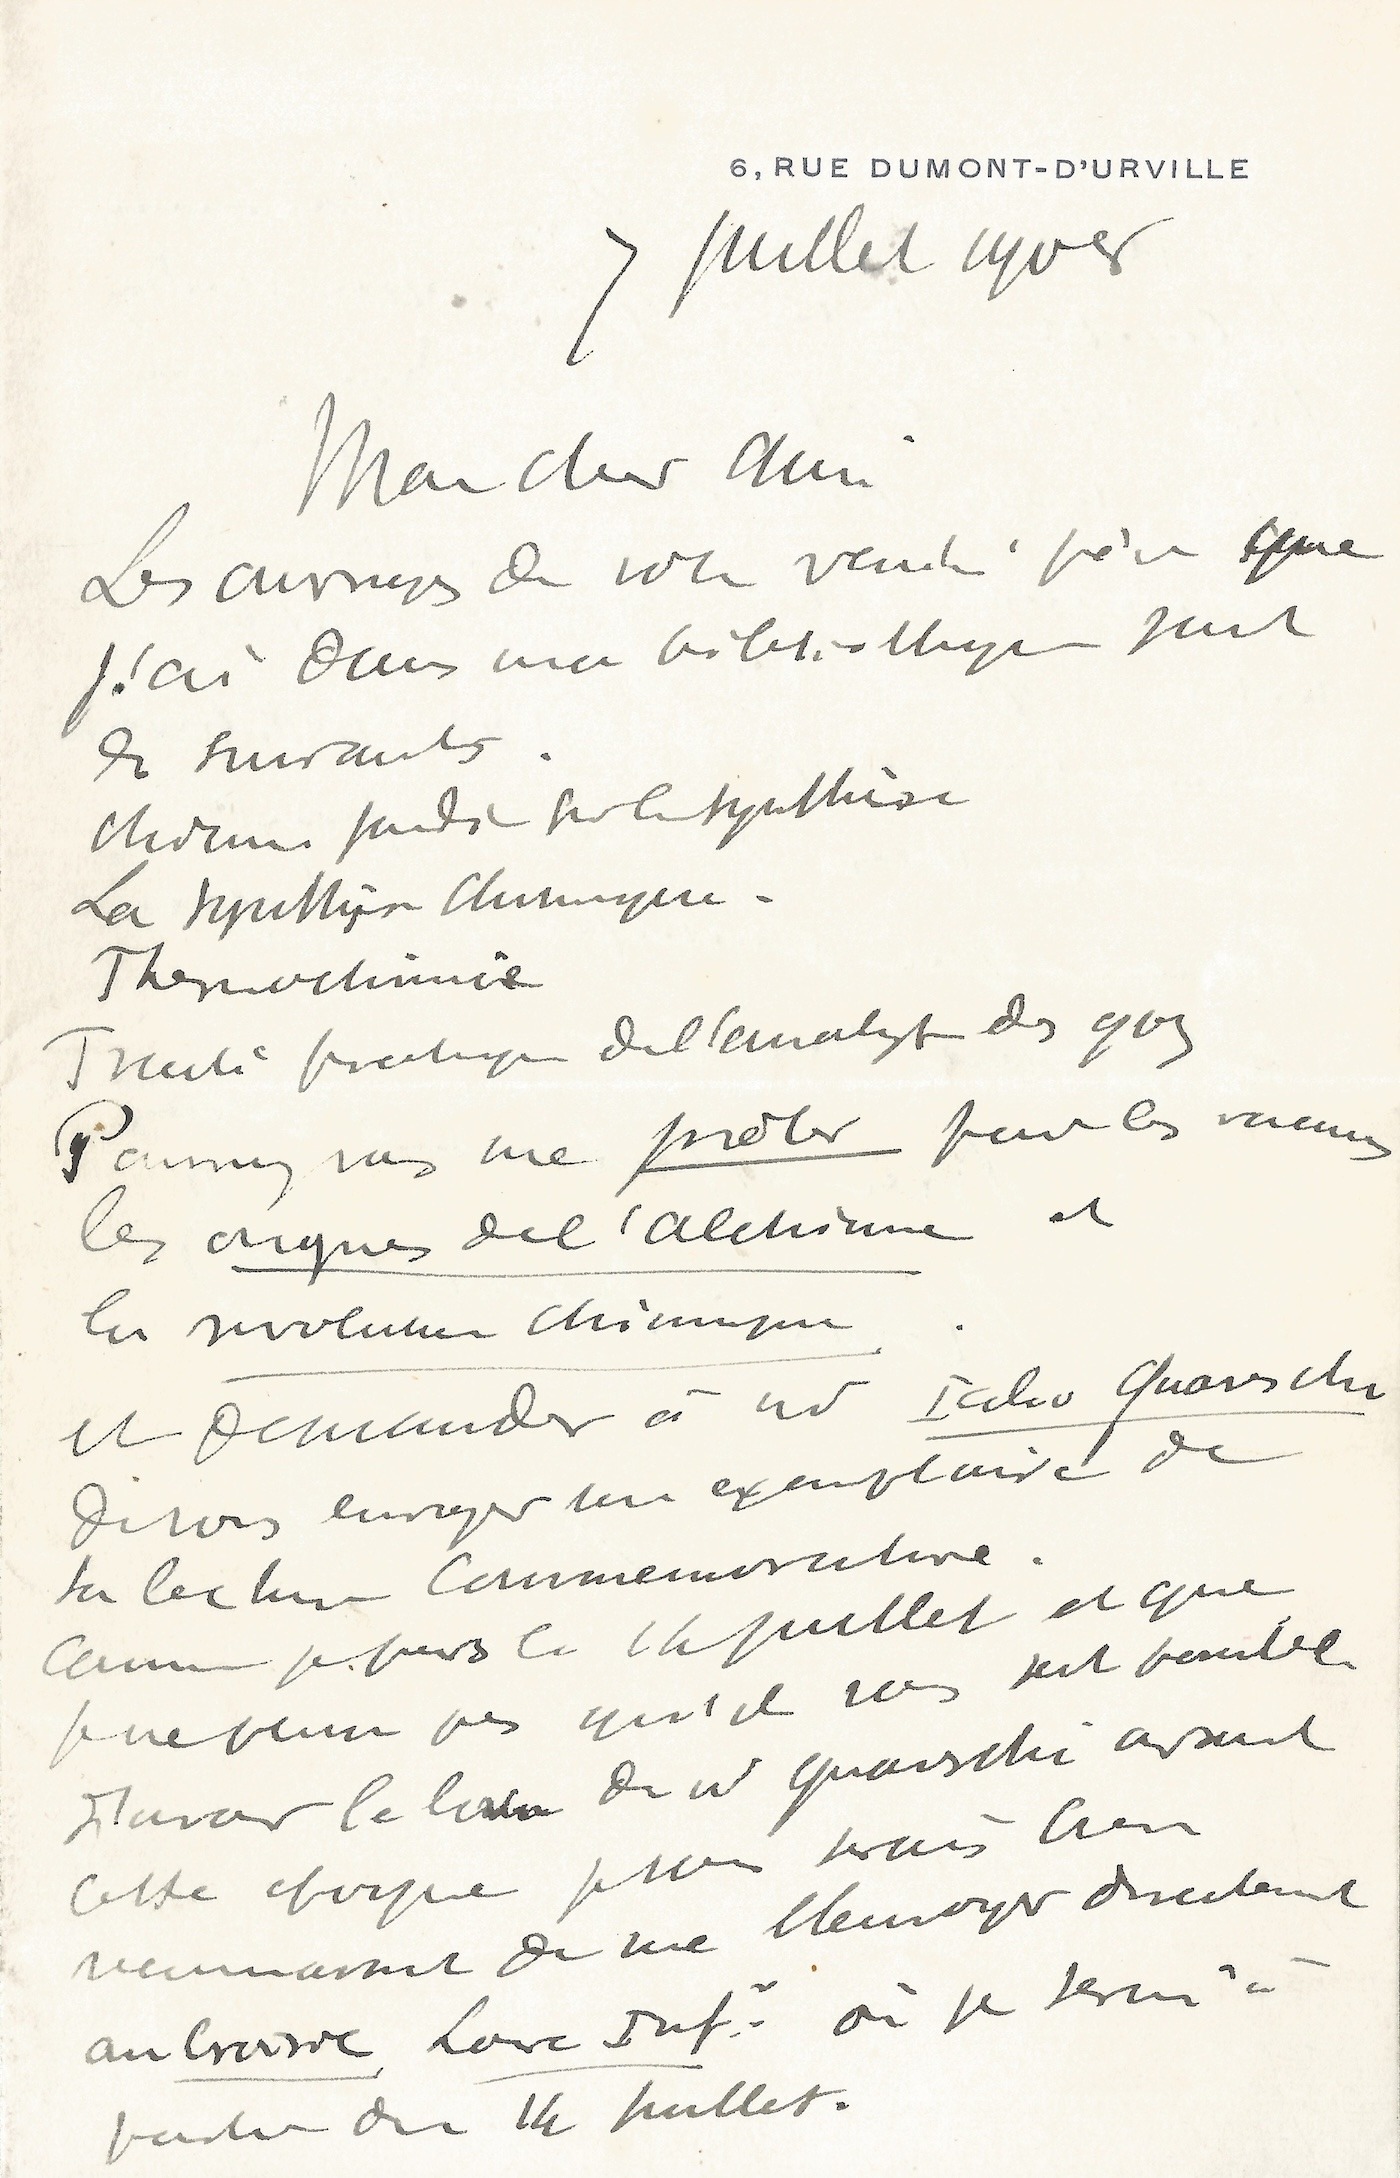 6, RUE DUMONT-D'URVILLE
7 juillet 1908
Mon cher Ami
Les ouvrages de votre père que
j'ai dans ma bibliothèque sont
les suivants.
chimie fondée sur la synthèse
La synthèse chimique.
Thermochimie
Traité pratique de l'analyse des gaz
Pourriez vous me prêter pour les vacances
les origines de l'alchimie et
la revolution chimique.
et demander à Mr Icilio Guareschi
de vous envoyer un exemplaire de
sa lecture Commemorative.
Comme je pars le 14 juillet et que
je ne pense pas qu'il vous soit possible
d'avoir le livre de Mr Guareschi avant
cette époque je vous serais bien
reconnaissant de me l'envoyer directement
au Croisic, Loire Infre où je serai à
partir du 14 juillet.